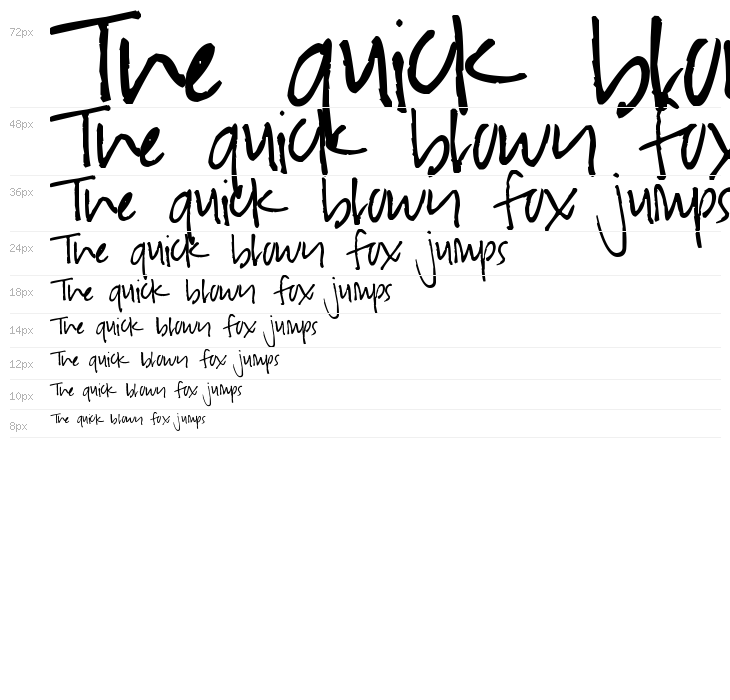 72px The quick
48px The quick brown fox
36px The quick brown fox jumps
24px The quick brown fox jumps
18px The quick brown fox jumps
14px The quick brown fox jumps
12px The quick brown fox jumps
10px The quick brown fox jumps
8px The quick brown fox jumps